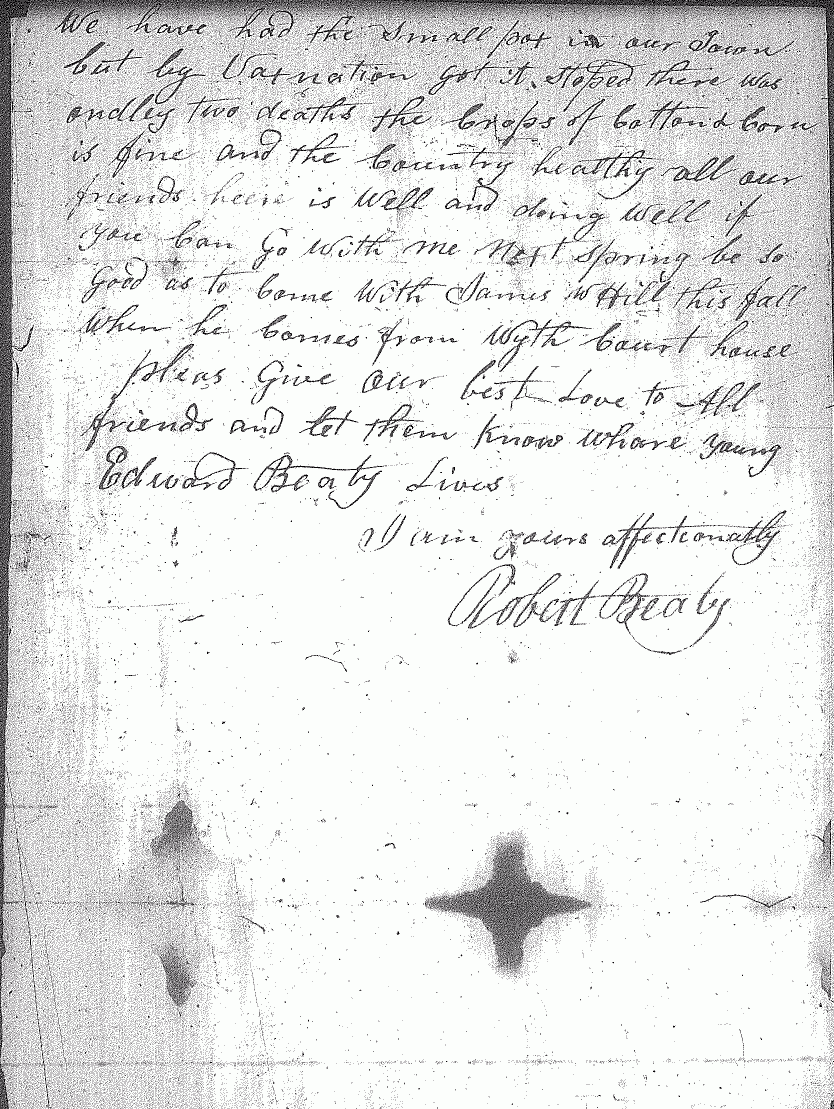 We have had the Small pox in our Town
but by Varnation got it stoped there was
ondley two deaths the Crops of Cotton & Corn
is fine and the Country healthy all our
friends heere is Well and doing Well if
you Can Go With me next spring be so
Good as to Come With James W Hill this fall
When he Comes from Wyth Court house
pleas Give Our best Love to All
friends and let them Know Whare young
Edward Beaty Lives
I am yours affectionatly
Robert Beaty